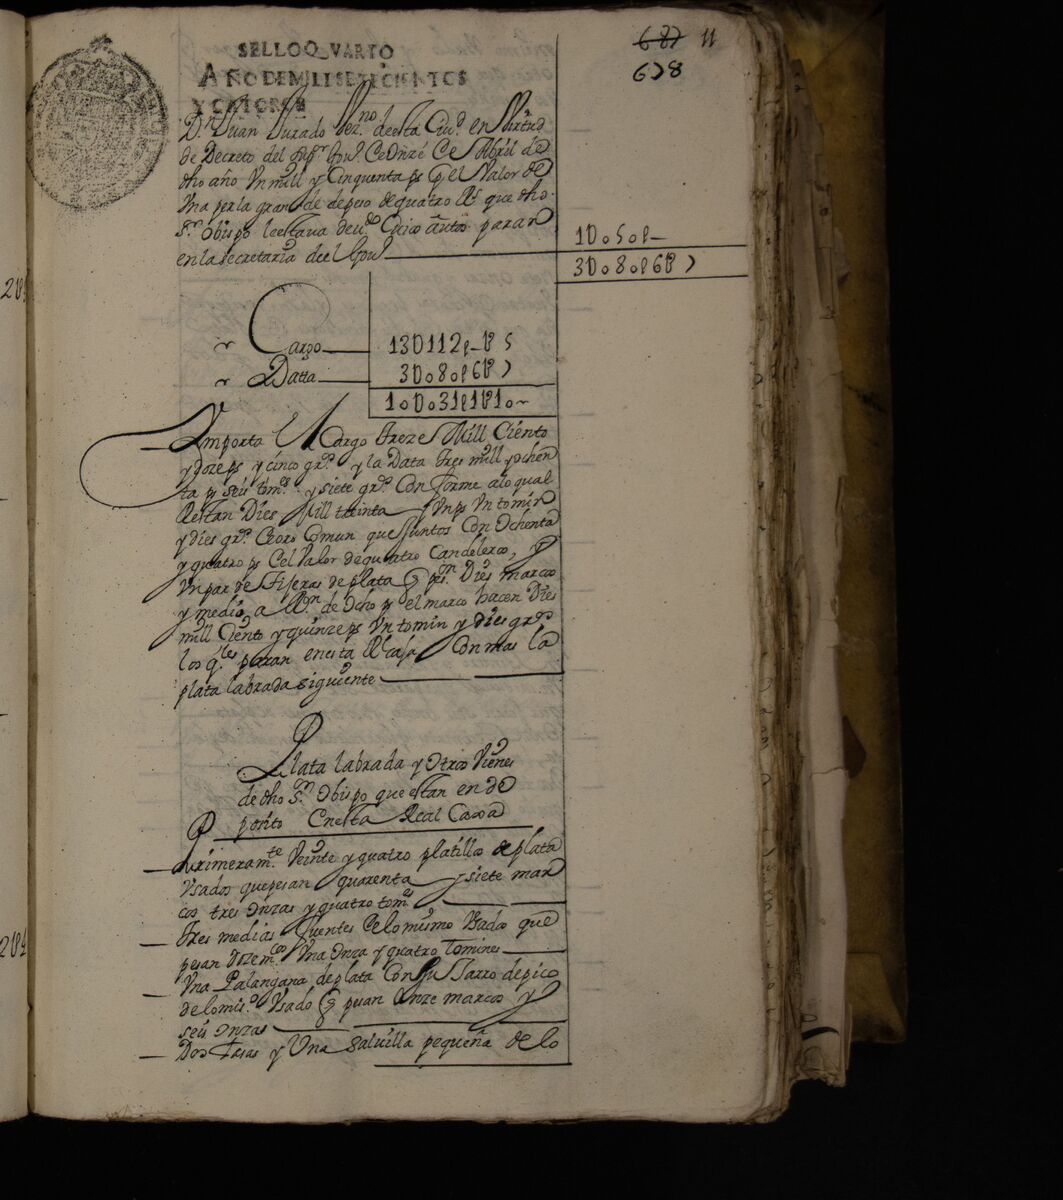 687 11
678
SELLO QVARTO
AÑO DE MIL I SETECIENTOS
Y CATORSE
Dn Juan Jurado Vezno deesta Ciud en Virtud
de Decreto del Sr Govr de Onze de Abril de
dho año Un mill y Cinquenta ps por el Valor de
Una perla grande de peso de quatro Rs que dho
Sr Obispo leestaua deudo Cuios autos paran
en la secretaria de el Govno
1U050p—
3U080p6t7
Cargo 13U112p—t5
Datta 3U080p6t7
10U031p1t10
Ymporta el Cargo treze Mill Ciento
y doze ps y cinco grs y la Data tres mill y ochen
ta ps seis toms y siete grs Conforme alo qual
Restan Dies Mill treinta y Un ps Un tomin
y dies grs de oro Comun que Juntos Con Ochenta
y quatro ps del Valor de quatro Candeleros, y
Un par de Tijeras de plata q pesan Dies marcos
y medio a Rason de Ocho ps el marco hacen Dies
mill Ciento y quinze ps Un tomin y dies grs
los qles paran en esta Rl Caja Con mas la
plata labrada siguiente
Plata labrada y Otros Vienes
de dho Sr Obispo que estan en de
posito En esta Real Caxa
Primeramte Veinte y quatro platillos de plata
Vsados que pesan quarenta y siete mar
cos tres Onzas y quatro toms
tres medias fuentes de lo mismo Vsado que
pesan doze mcos Una Onza y quatro tomines
Una Palangana de plata Con su Jarro de pico
de lo mismo Vsado q pesan Onze marcos y
seis Onzas
Dos tasas y Una Saluilla pequeña de lo